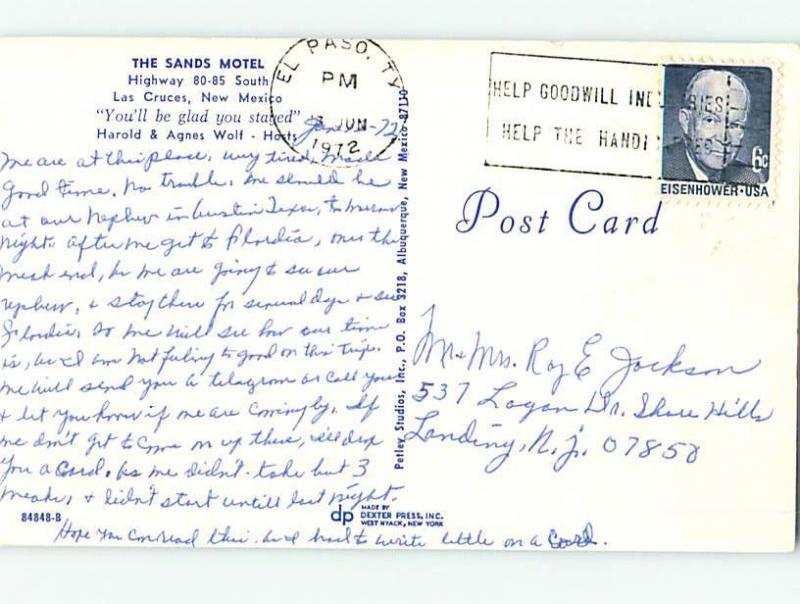 THE SANDS MOTEL
Highway 80-85 South
Las Cruces, New Mexico
"You'll be glad you stayed"
Harold & Agnes Wolf - Hosts
EL PASO, TX
PM
JUN
1972
HELP GOODWILL INDUSTRIES
HELP THE HANDI
6c
EISENHOWER·USA
Post Card
We are at this place, very tired, made
good time. No trouble. We should be
at our nephew in Austin Texas, tomorrow
night. After we get to Flordia, over the
week end, for we are going to see our
nephew, & stay there for several days & see
Flordia. So we will see how our time
is, as I am not feeling to good on this trip.
We will send you a telagram or call you
& let you know if we are coming by. If
we don't get to come on up there, I'll drop
you a Card. As we didn't take but 3
weeks, & didn't start untill last night.
Hope you can read this. as I had to write little on a Card.
Petley Studios, Inc., P.O. Box 3218, Albuquerque, New Mexico 87110
Mr & Mrs. Roy E Jackson
537 Logan Dr. Shore Hills
Landing, N. J. 07850
84848-B
dp
MADE BY
DEXTER PRESS, INC.
WEST NYACK, NEW YORK